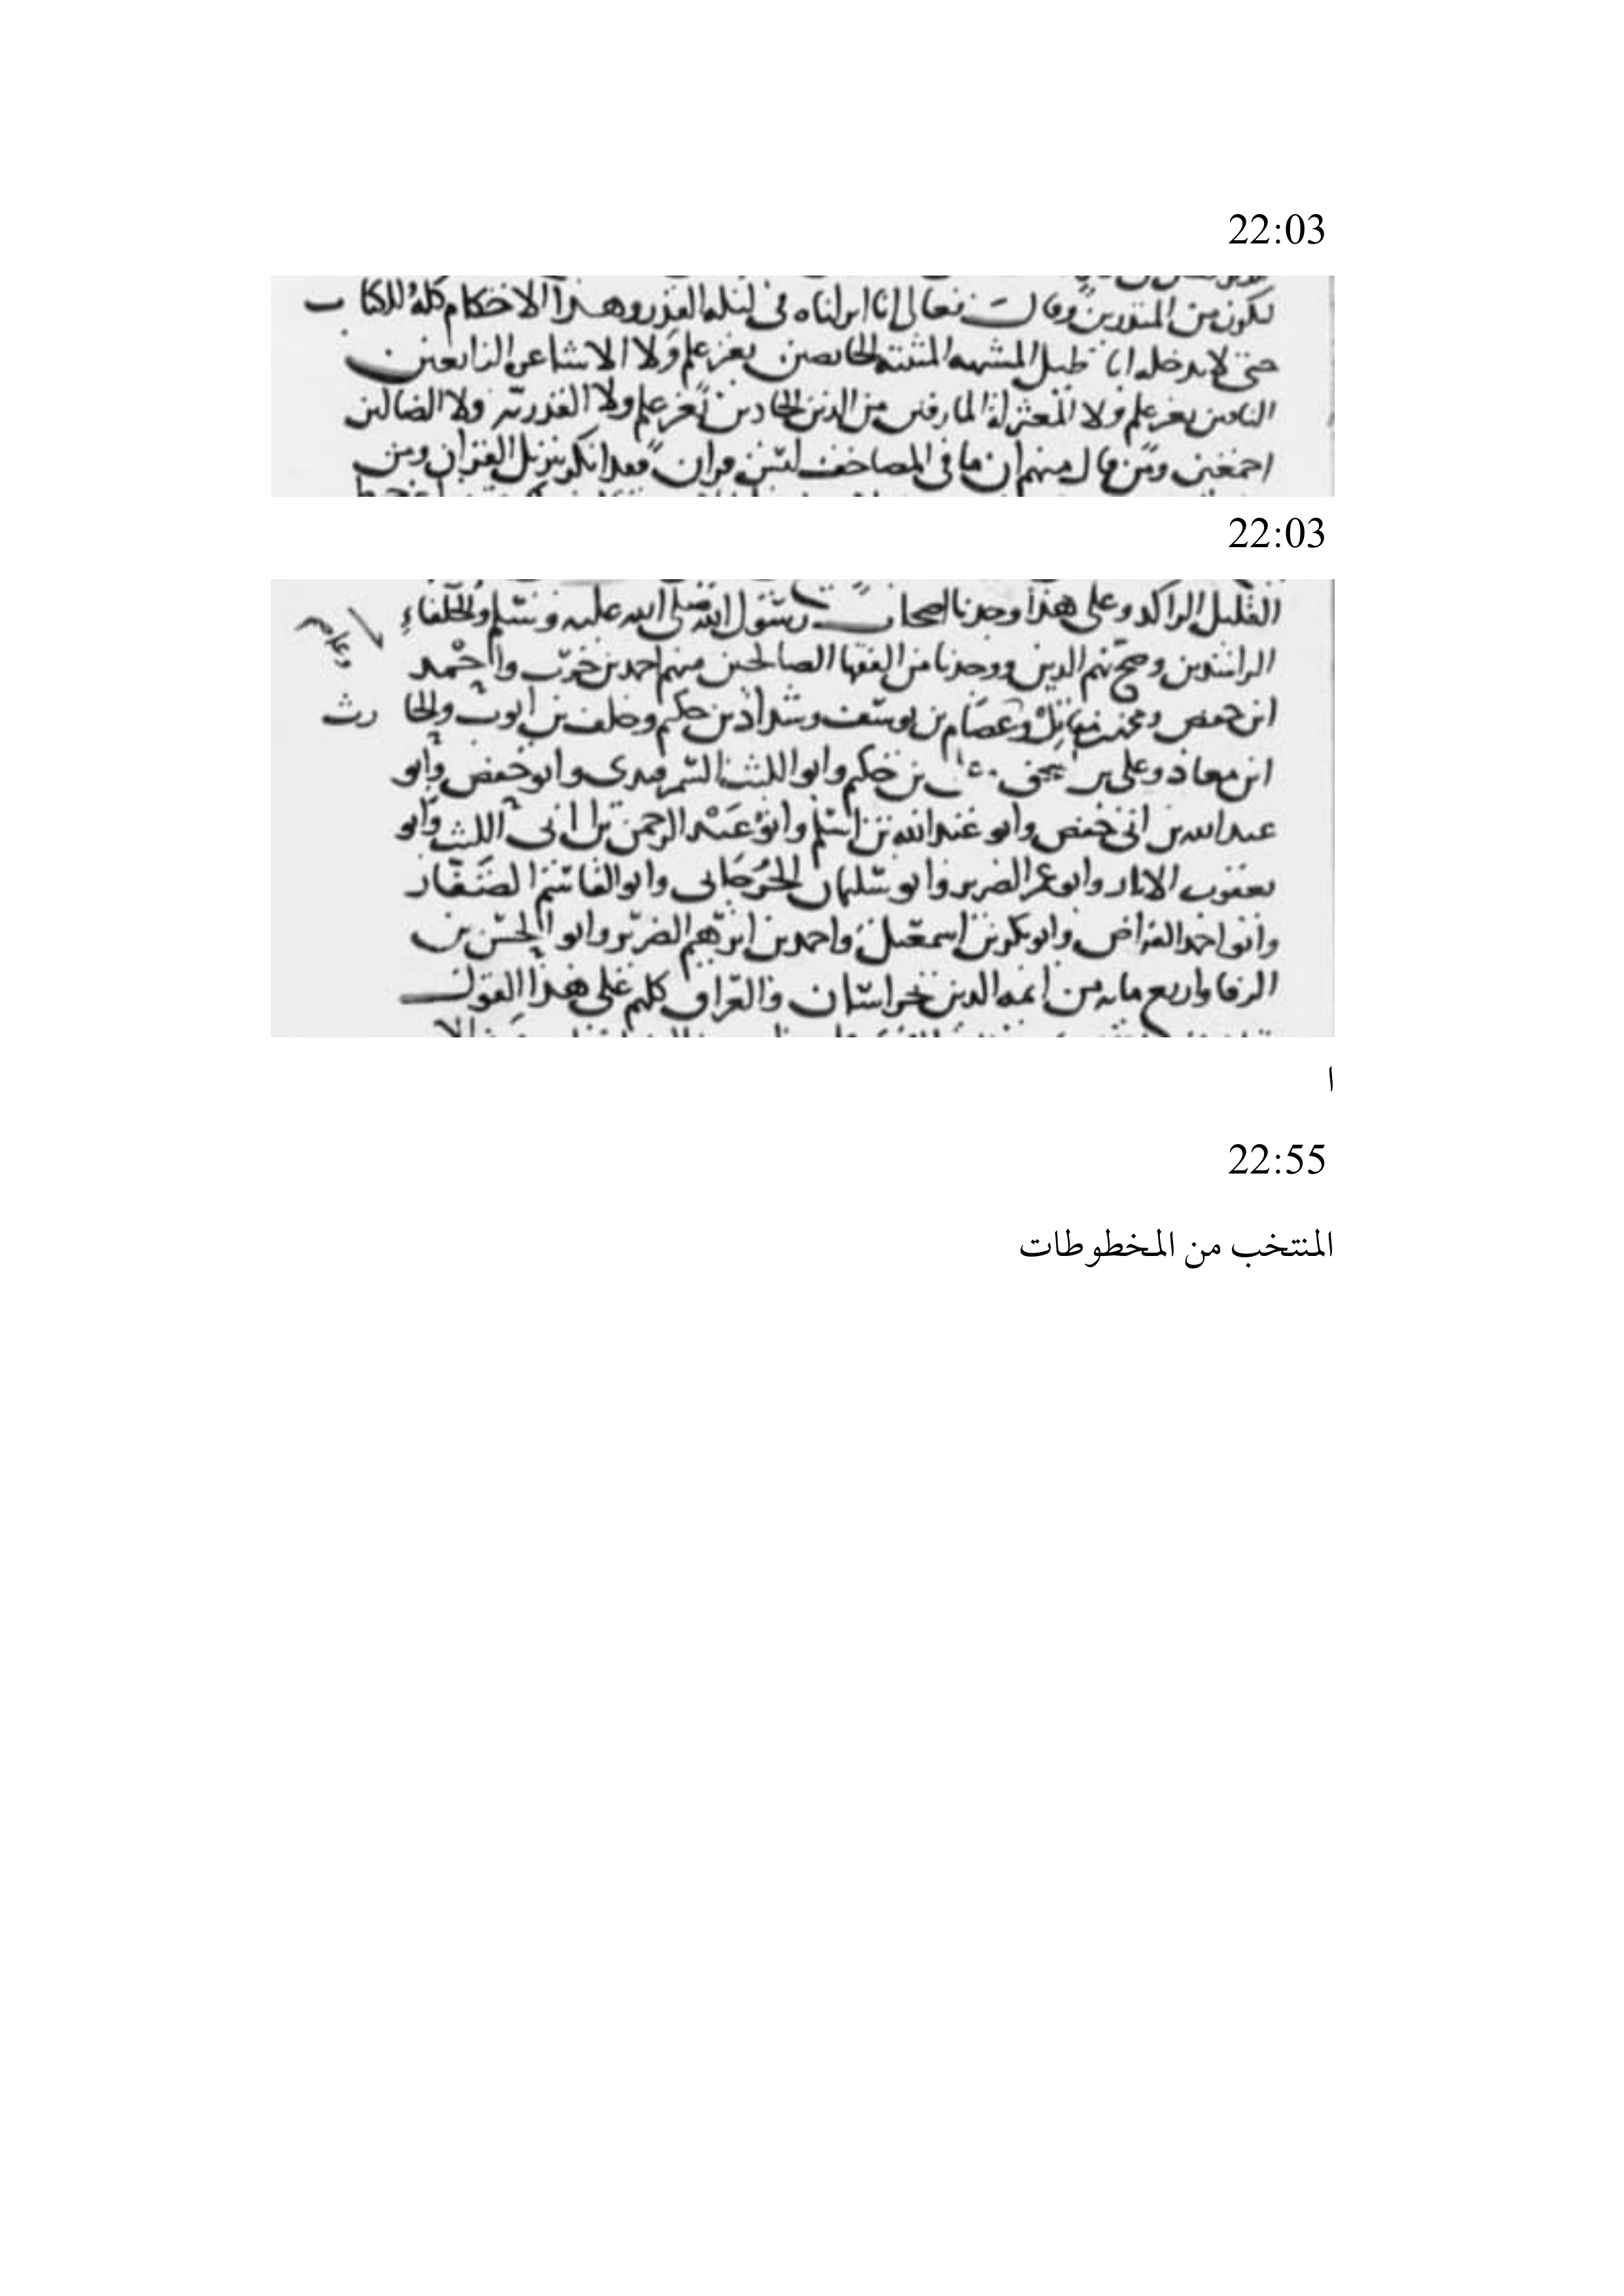 22:03
لتكون من المنذرين وقال تعالى انا انزلناه في ليلة القدر وهذا الاحكام كله للكتاب
حتى لا يدخله المشبهة المشتبه بغير علم ولا الاشاعرة الزايغين
بغير علم ولا المعتزلة المارقين من الدين بغير علم ولا القدرية ولا الضالين
اجمعين ومن قال منهم ان ما في المصاحف ليس قران فقد انكر تنزيل القران ومن
22:03
القليل الراكد وعلى هذا وجدنا اصحاب رسول الله صلى الله عليه وسلم والخلفاء
الراشدين وصح نهم الدين ووجدنا من الفقها الصالحين منهم احمد بن حرب واحمد
ابن حفص وعصام بن يوسف وشداد بن حكيم وخلف بن ايوب والحارث
ابن معاذ وعلى بن حكيم وابو الليث السمرقندي وابو حفص وابو
عبد الله بن ابي حفص وابو عبد الله بن اسلم وابو عبد الرحمن بن ابي الليث وابو
يعقوب الابار وابو عمر الضرير وابو سليمان الجرجاني وابو القاسم الصفار
وابو احمد الفراض وابو بكر بن اسمعيل واحمد بن ابرهيم الضرير وابو الحسن بن
الرفا واربع مايه من ايمه الدين بخراسان والعراق كلهم على هذا القول
ا
22:55
المنتخب من المخطوطات